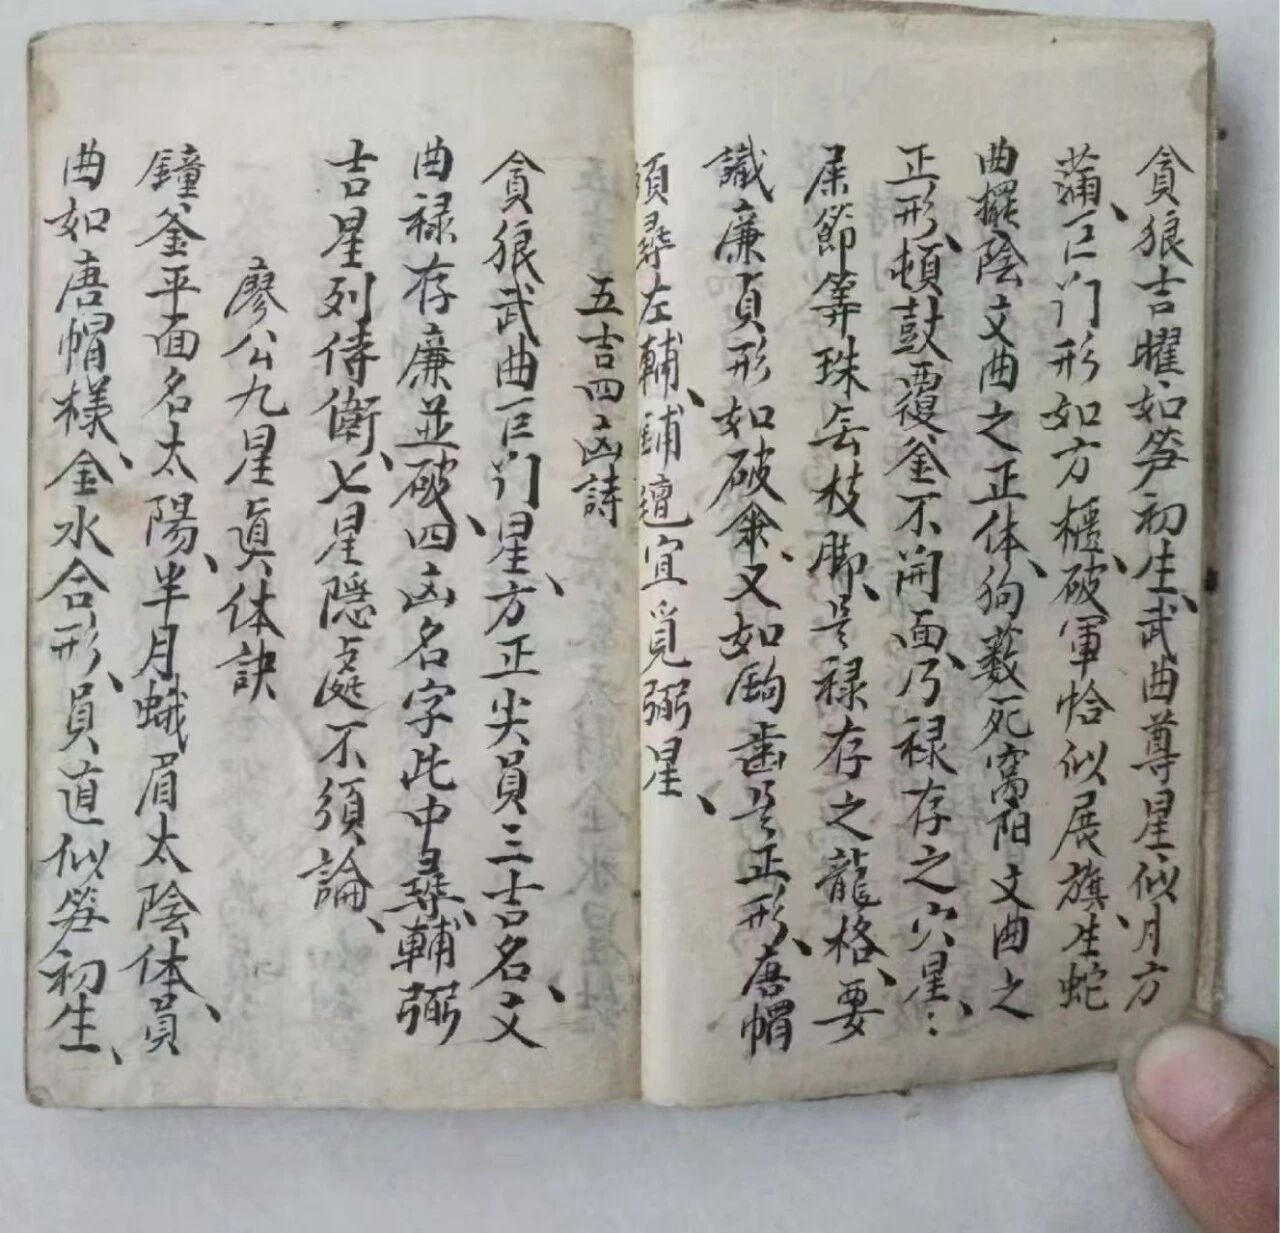 貪狼吉曜如笋初生、武曲尊星似月方
蒲、巨门形如方櫃、破軍恰似展旗、生蛇
曲擺陰文曲之正体、狗藪死窩阳文曲之
正形、頓鼓覆釜不開面、乃禄存之穴星、
屎節等珠無枝脚、是禄存之龍格、要
識廉貞形如破傘、又如齒是正形、唐帽
須尋左輔、宜覓弼星、
五吉四凶詩
貪狼武曲巨门星、方正尖員三吉名、文
曲禄存廉並破、四凶名字此中尋、輔弼
吉星列侍衛、七星隱處不須論、
廖公九星真体訣
鐘釜平面名太陽、半月蛾眉太陰体、員
曲如唐帽樣、金水合形、員直似笋初生、